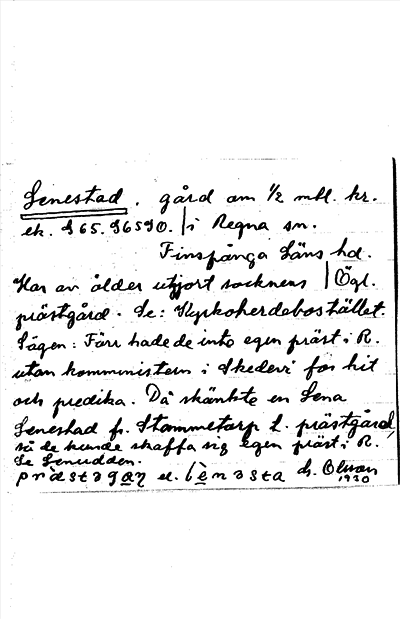 Lenestad. gård om 1/2 mtl. kr.
ek. S 65. S6590. | i Regna sn.
Finspånga Läns hd.
Har av ålder utgjort socknens | Ögl.
prästgård. Se: Kyrkoherdebostället.
Sägen: Förr hade de inte egen präst i R.
utan komministern i Skedevi for hit
och predika. Då skänkte en Lena
Lenestad fr. Stammetorp t. prästgård,
så de kunde skaffa sig egen präst i R.
Se Lenudden.
el. lènasta ds. Olsson
1930